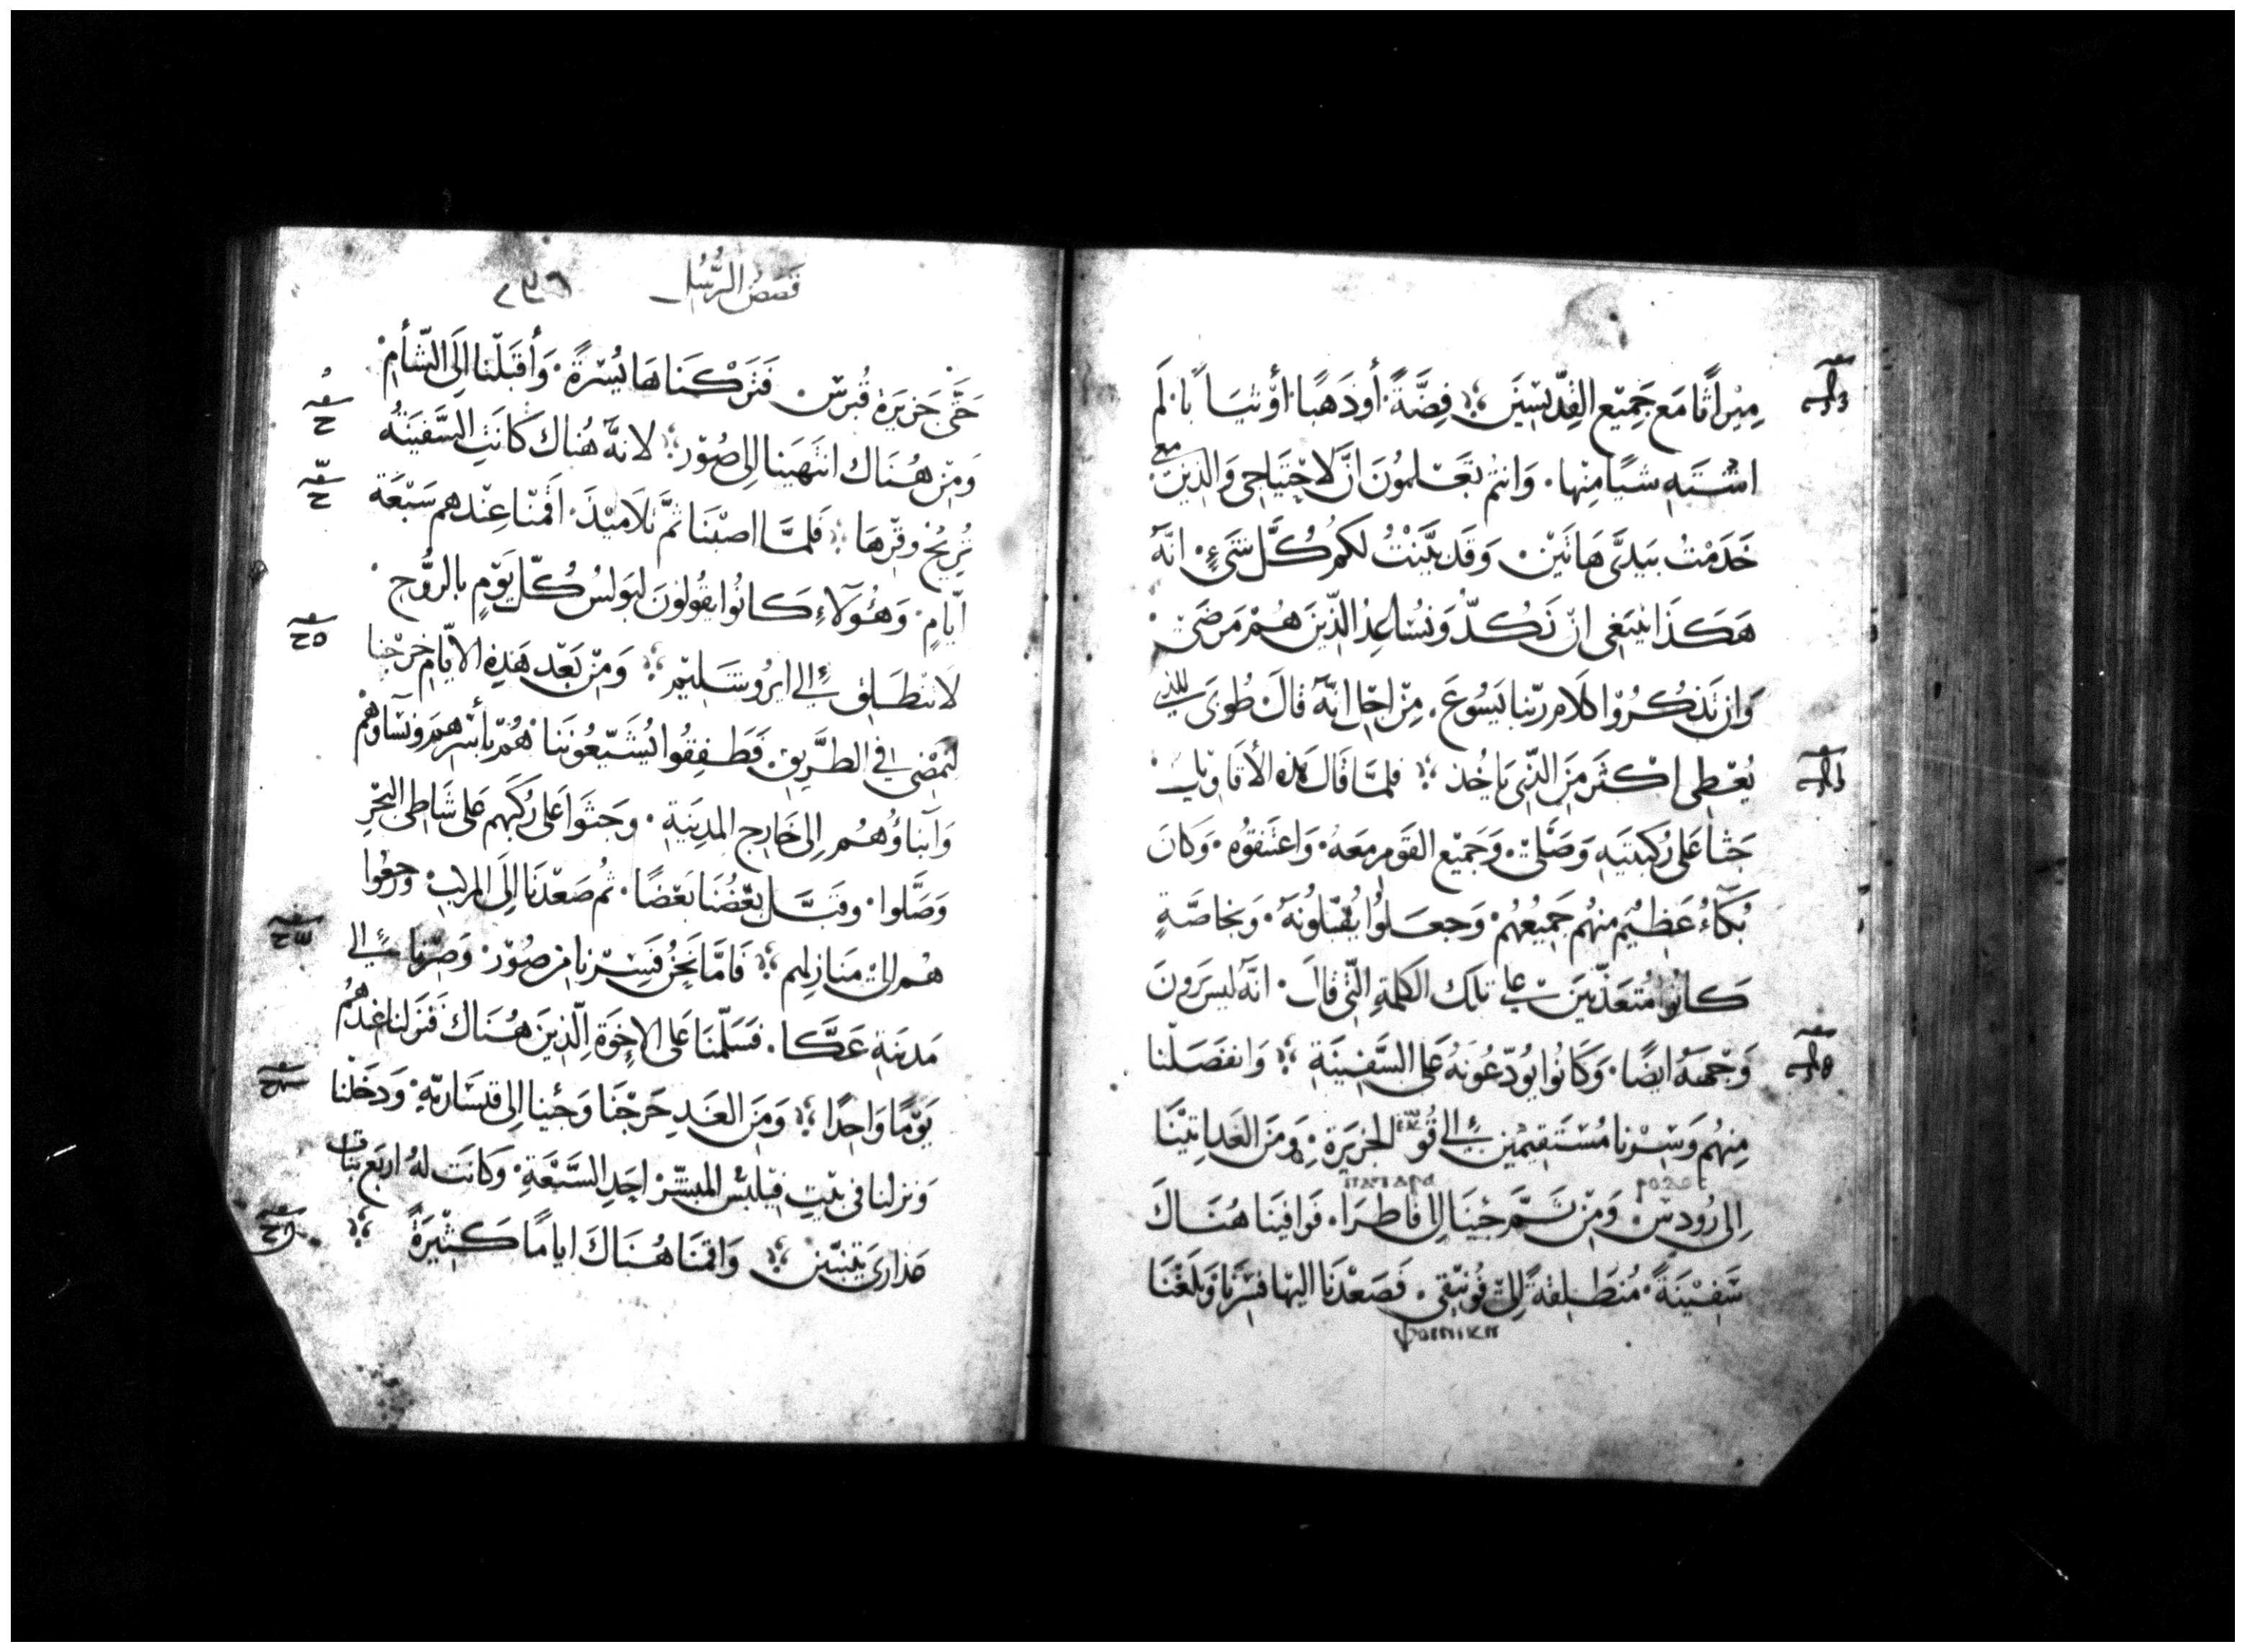 مِيْراثًا مَع جَمِيْع القِدّيْسِيْنَ فِضَّةً أو ذَهَبًا أوْ ثيَابًا لَم
اشْتَهِ شيًا مِنْها وَانتُم تَعْلمُونَ انَّ لاحْتِيَاجى وَالذين معى
خَدَمْت بيَدَىَّ هَاتَيْن وَقَد بيَّنتُ لكُم كُلَّ شَىءٍ انَّهُ
هَكَذَا يَنبَغى انْ نَكُدّ وَنُسَاعِدُ الذّيْنَ هُمْ مَرضَى
وَان نَذكُرُوا كلَام رَبّنا يَسُوعَ مِنْ اجْل انّهُ قالَ طُوبَى للذى
يُعْطِى اكْثَر مِنَ الذّى يَاخُذ فلمَّا قَال هذه الأقاويلَ
جَثا عَلى رُكبَتيَهِ وَصَلَّى وَجَمِيْع القَوم مَعَهُ وَاعتَنقوُه وَكانَ
بُكآءُ عَظيْم منهُم جَميْعُهُم وَجعَلوُا يُقبّلونَهُ وَبخاصَّةٍ
كانُوا مُتعَذّبينَ على تلك الكلمَةِ التّى قالَ انّهُ ليسَ يَرَونَ
وَجْههُ ايضًا وَكَانوُا يُودّعُونهُ عَلى السَّفيْنَةِ وَانفصَلْنا
مِنهُم وَسِرْنا مُسْتَقِيْمين الى قُو الجزيرَةِ وَمنَ الغَد اتَيْنَا
ροδος παταρα
الى رُودسْ وَمِنْ ثَمَّ جئنَا الى فاطَرَا فَوافيَنا هُنَاكَ
سَفيْنَةً مُنطَلِقةً الى فُونيْقى فَصَعْدنَا اليْها فسْرنَا وَبَلَغْنَا
φοινικη
قَصَصُ الرُّسُل
حَتّى جَزيرَة قُبرسْ فَتَرَكنَاهَا يُسْرَةً وَأقبَلْنا الَى الشأم
وَمِنْ هُنَاك انتَهَينا الى صُوْر لانهُ هُناك كَانتِ السَّفينَةُ
تُريْحُ وقْرهَا فَلمَّا اصبْنَا ثمَّ تلاميْذَ اقَمْنَا عِنْدهم سَبْعَة
ايّامٍ وَهَؤلآءِ كَانُوا يَقُولوُنَ لبَولسُ كُلّ يَوْمٍ بالرُّوحِ
لا تنْطَلِق الى ايرُوشَليْم وَمِنْ بَعْد هَذِه الايّام خرَجْنا
لنَمْضى فى الطَّريق فَطفِقُوا يُشَيّعُونَنا هُم بأسْرهم وَنسَاوهُم
وَابْناؤهُم الى خَارج المَدينَةِ وَجَثَوا عَلى رُكَبهم عَلى شَاطى البَحْر
وَصَلَّوا وقبَّل بَعْضُنَا بَعْضًا ثمُ صَعْدنَا الى المركبْ وَرَجعُوا
هُم الى مَنازِلهم فَامَّا نَحْنُ فَسِرْنا مِن صُوْر وَصِرْنا الى
مَدينَةِ عَكَّا فَسَلّمْنَا عَلى الاخِوَة الّذينَ هُنَاك فَنَزَلنا عندهُم
يَوْمًا وَاحِدًا وَمِنَ الغَدِ خَرَجْنَا وَجئنا الى قيسَاريّةِ وَدَخَلْنا
وَنزَلنا فى بيْتِ فيْلبُس المبَشّرْ احَدِ السَّبْعَةِ وَكَانَت لهُ ارْبَع بَنات
عَذارى يَتنَبّين وَاقمْنَا هُنَاكَ ايامًا كَثيْرَةً